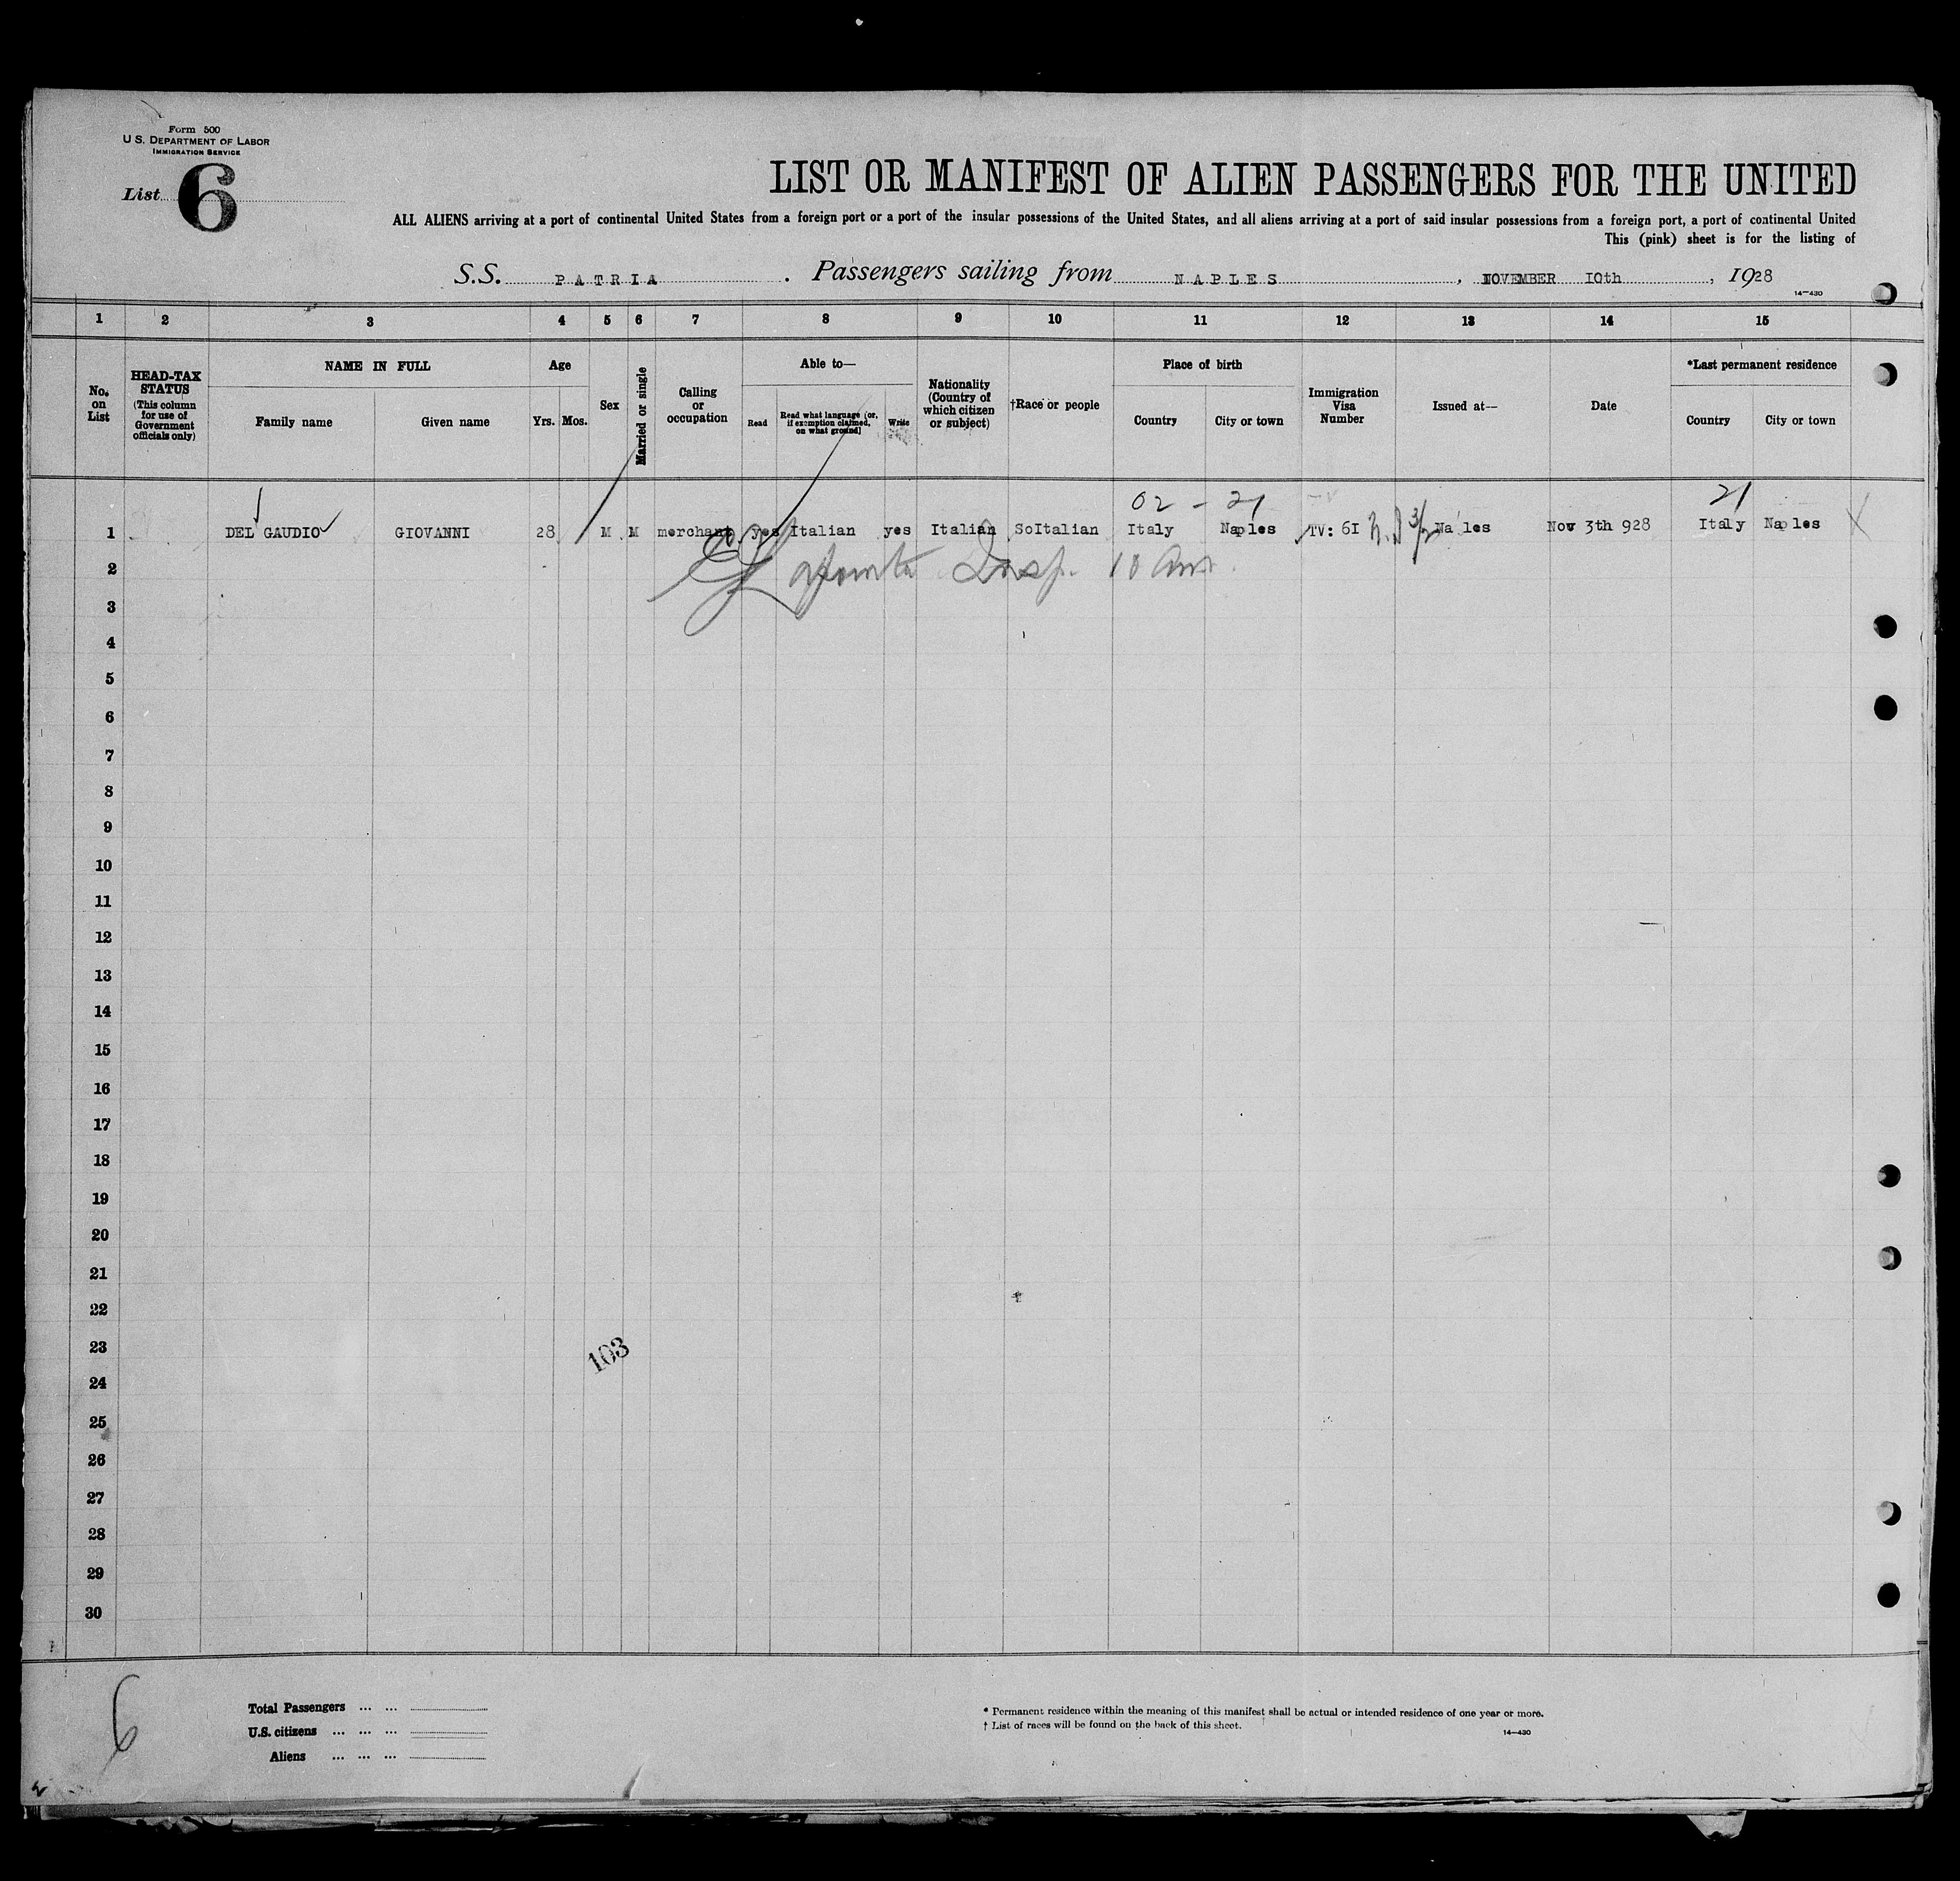 Form 500
U.S. DEPARTMENT OF LABOR
IMMIGRATION SERVICE
List 6
LIST OR MANIFEST OF ALIEN PASSENGERS FOR THE UNITED
ALL ALIENS arriving at a port of continental United States from a foreign port or a port of the insular possessions of the United States, and all aliens arriving at a port of said insular possessions from a foreign port, a port of continental United
This (pink) sheet is for the listing of
S.S. PATRIA. Passengers sailing from NAPLES, NOVEMBER 10th, 1928
14—430
1 2 3 4 5 6 7 8 9 10 11 12 13 14 15
No. on List
HEAD-TAX STATUS (This column for use of Government officials only)
NAME IN FULL
Family name
Given name
Age
Yrs. Mos.
Sex
Married or single
Calling or occupation
Able to—
Read
Read what language (or, if exemption claimed, on what ground)
Write
Nationality (Country of which citizen or subject)
†Race or people
Place of birth
Country
City or town
Immigration Visa Number
Issued at—
Date
*Last permanent residence
Country
City or town
02 - 21 21
1 DEL GAUDIO GIOVANNI 28 M M merchant yes Italian yes Italian SoItalian Italy Naples TV: 6I Na les Nov 3th 928 Italy Naples
2 Insp. 10
3
4
5
6
7
8
9
10
11
12
13
14
15
16
17
18
19
20
21
22
23
103
24
25
26
27
28
29
30
6
Total Passengers ... ...
U.S. citizens ... ... ...
Aliens ... ... ...
* Permanent residence within the meaning of this manifest shall be actual or intended residence of one year or more.
† List of races will be found on the back of this sheet.
14—430